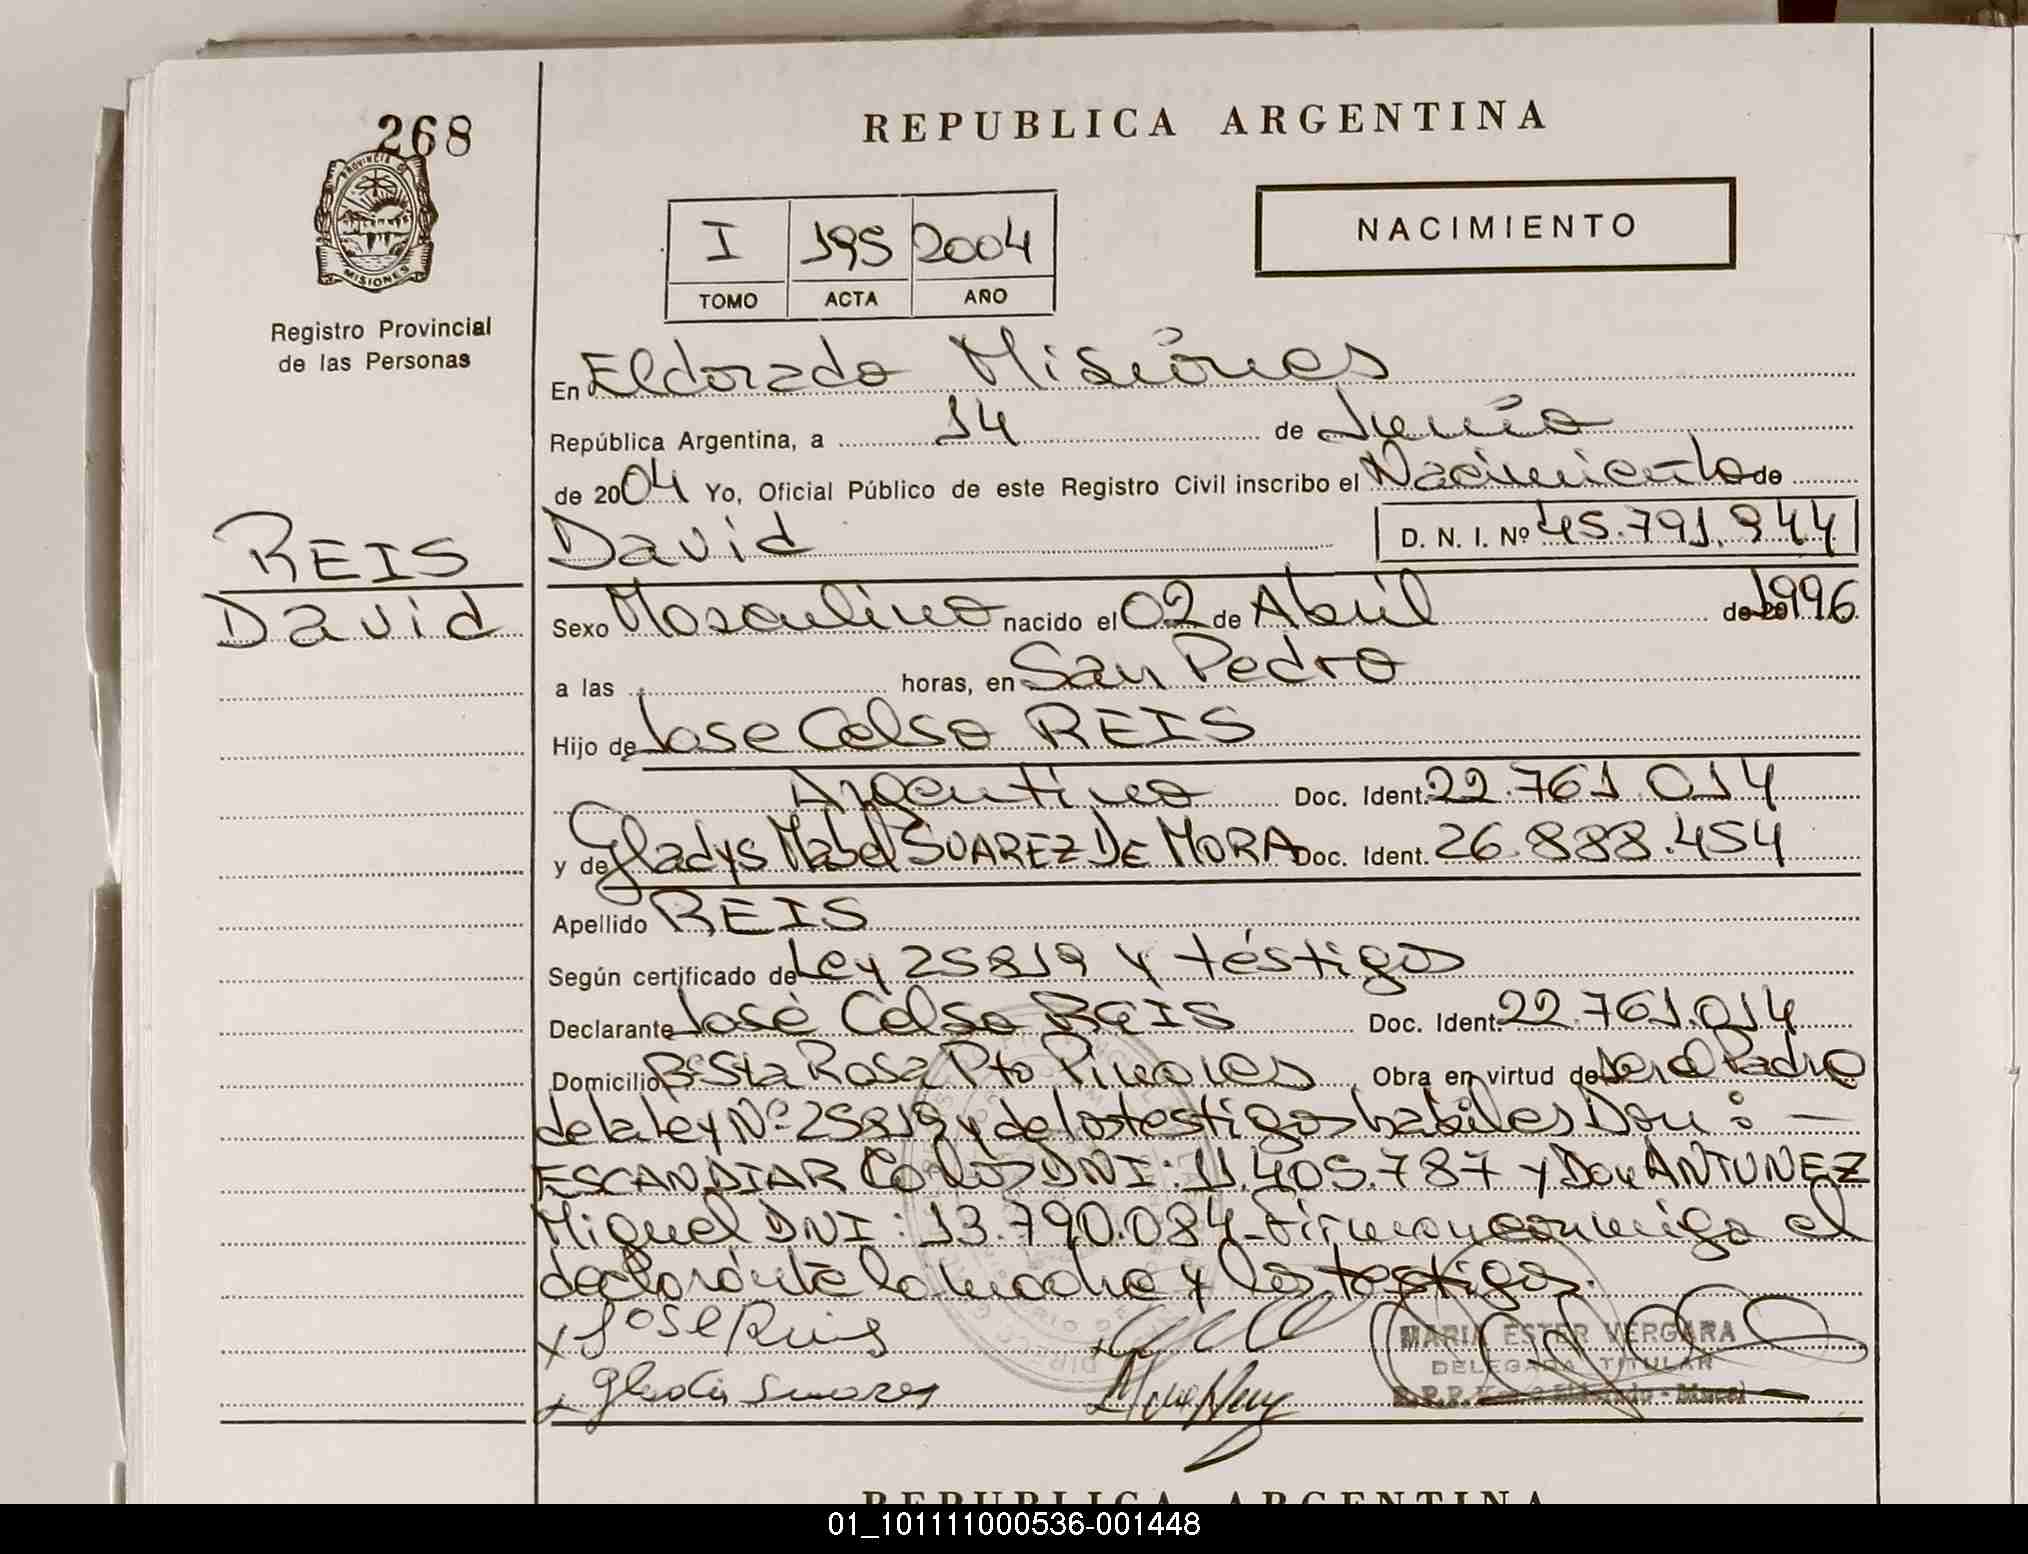 268
PROVINCIA DE
MISIONES
Registro Provincial
de las Personas
REIS
David
REPUBLICA ARGENTINA
NACIMIENTO
I 195 2004
TOMO ACTA AÑO
En Eldorado Misiones
República Argentina, a 14 de Junio
de 2004 Yo, Oficial Público de este Registro Civil inscribo el Nacimiento de
David D. N. I. Nº 45.791.944
Sexo Masculino nacido el 02 de Abril de 20 1996
a las horas, en San Pedro
Hijo de Jose Celso REIS
Argentino Doc. Ident. 22.761.014
y de Gladys Mabel SUAREZ DE MORA Doc. Ident. 26.888.454
Apellido REIS
Según certificado de Ley 25819 y testigos
Declarante José Celso REIS Doc. Ident. 22.761.014
Domicilio Bº Sta Rosa Pto Pinares Obra en virtud de ser el Padre
de la Ley Nº 25819 y de los testigos habiles Don: —
ESCANDIAR Carlos DNI: 11.405.787 y Don ANTUNEZ
Miguel DNI: 13.790.084 - Firman conmigo el
declarante la madre y los testigos.
x Jose Reis
MARIA ESTER VERGARA
DELEGADA TITULAR
REPUBLICA ARGENTINA
01_101111000536-001448